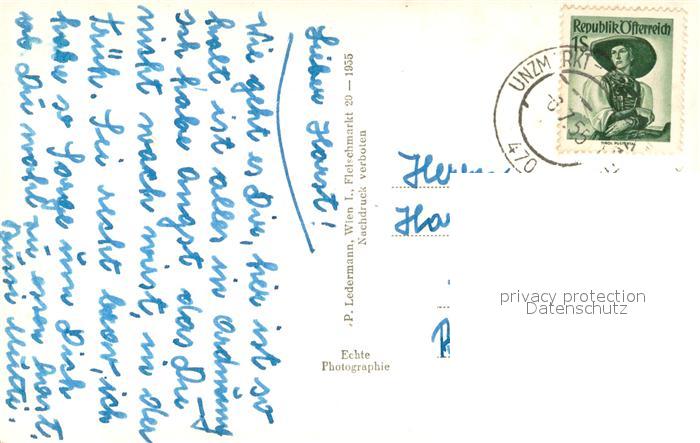 Lieber Horst!
Wie geht es Dir, hier ist so
halt ist alles in Ordnung
ich habe Angst das Du
nicht wach wirst, in der
früh. Sei recht brav, ich
habe so Sorge um Dich
ob Du wohl zu essen hast.
Bussi Mutti
P. Ledermann, Wien I., Fleischmarkt 20 — 1955
Nachdruck verboten
Echte
Photographie
Republik Österreich
1S
UNZMARKT
470
Her
Ha
privacy protection
Datenschutz